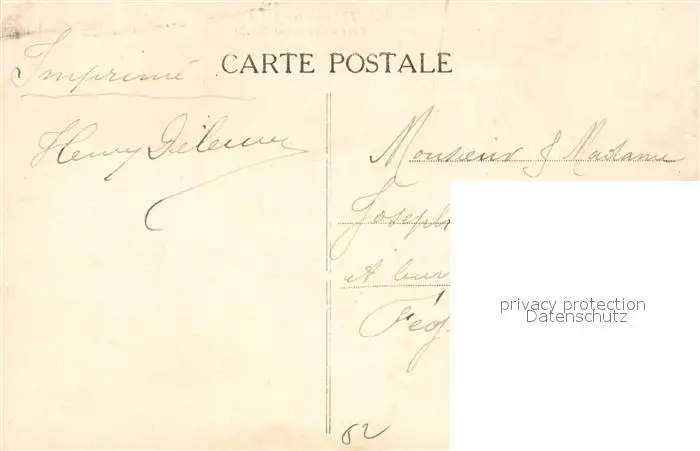 Imprimé
CARTE POSTALE
Henry
Monsieur & Madame
Joseph
et leur
privacy protection
Datenschutz
62